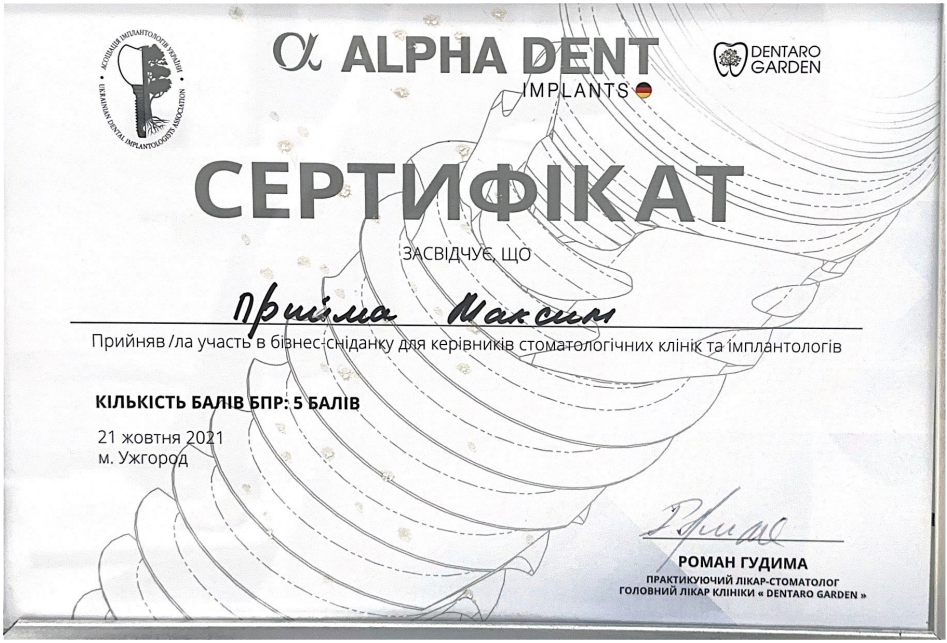 АСОЦІАЦІЯ ІМПЛАНТОЛОГІВ УКРАЇНИ
UKRAINIAN DENTAL IMPLANTOLOGISTS ASSOCIATION
α ALPHA DENT
IMPLANTS
DENTARO
GARDEN
СЕРТИФІКАТ
ЗАСВІДЧУЄ, ЩО
Прийма Максим
Прийняв /ла участь в бізнес-сніданку для керівників стоматологічних клінік та імплантологів
КІЛЬКІСТЬ БАЛІВ БПР: 5 БАЛІВ
21 жовтня 2021
м. Ужгород
РОМАН ГУДИМА
ПРАКТИКУЮЧИЙ ЛІКАР-СТОМАТОЛОГ
ГОЛОВНИЙ ЛІКАР КЛІНІКИ « DENTARO GARDEN »